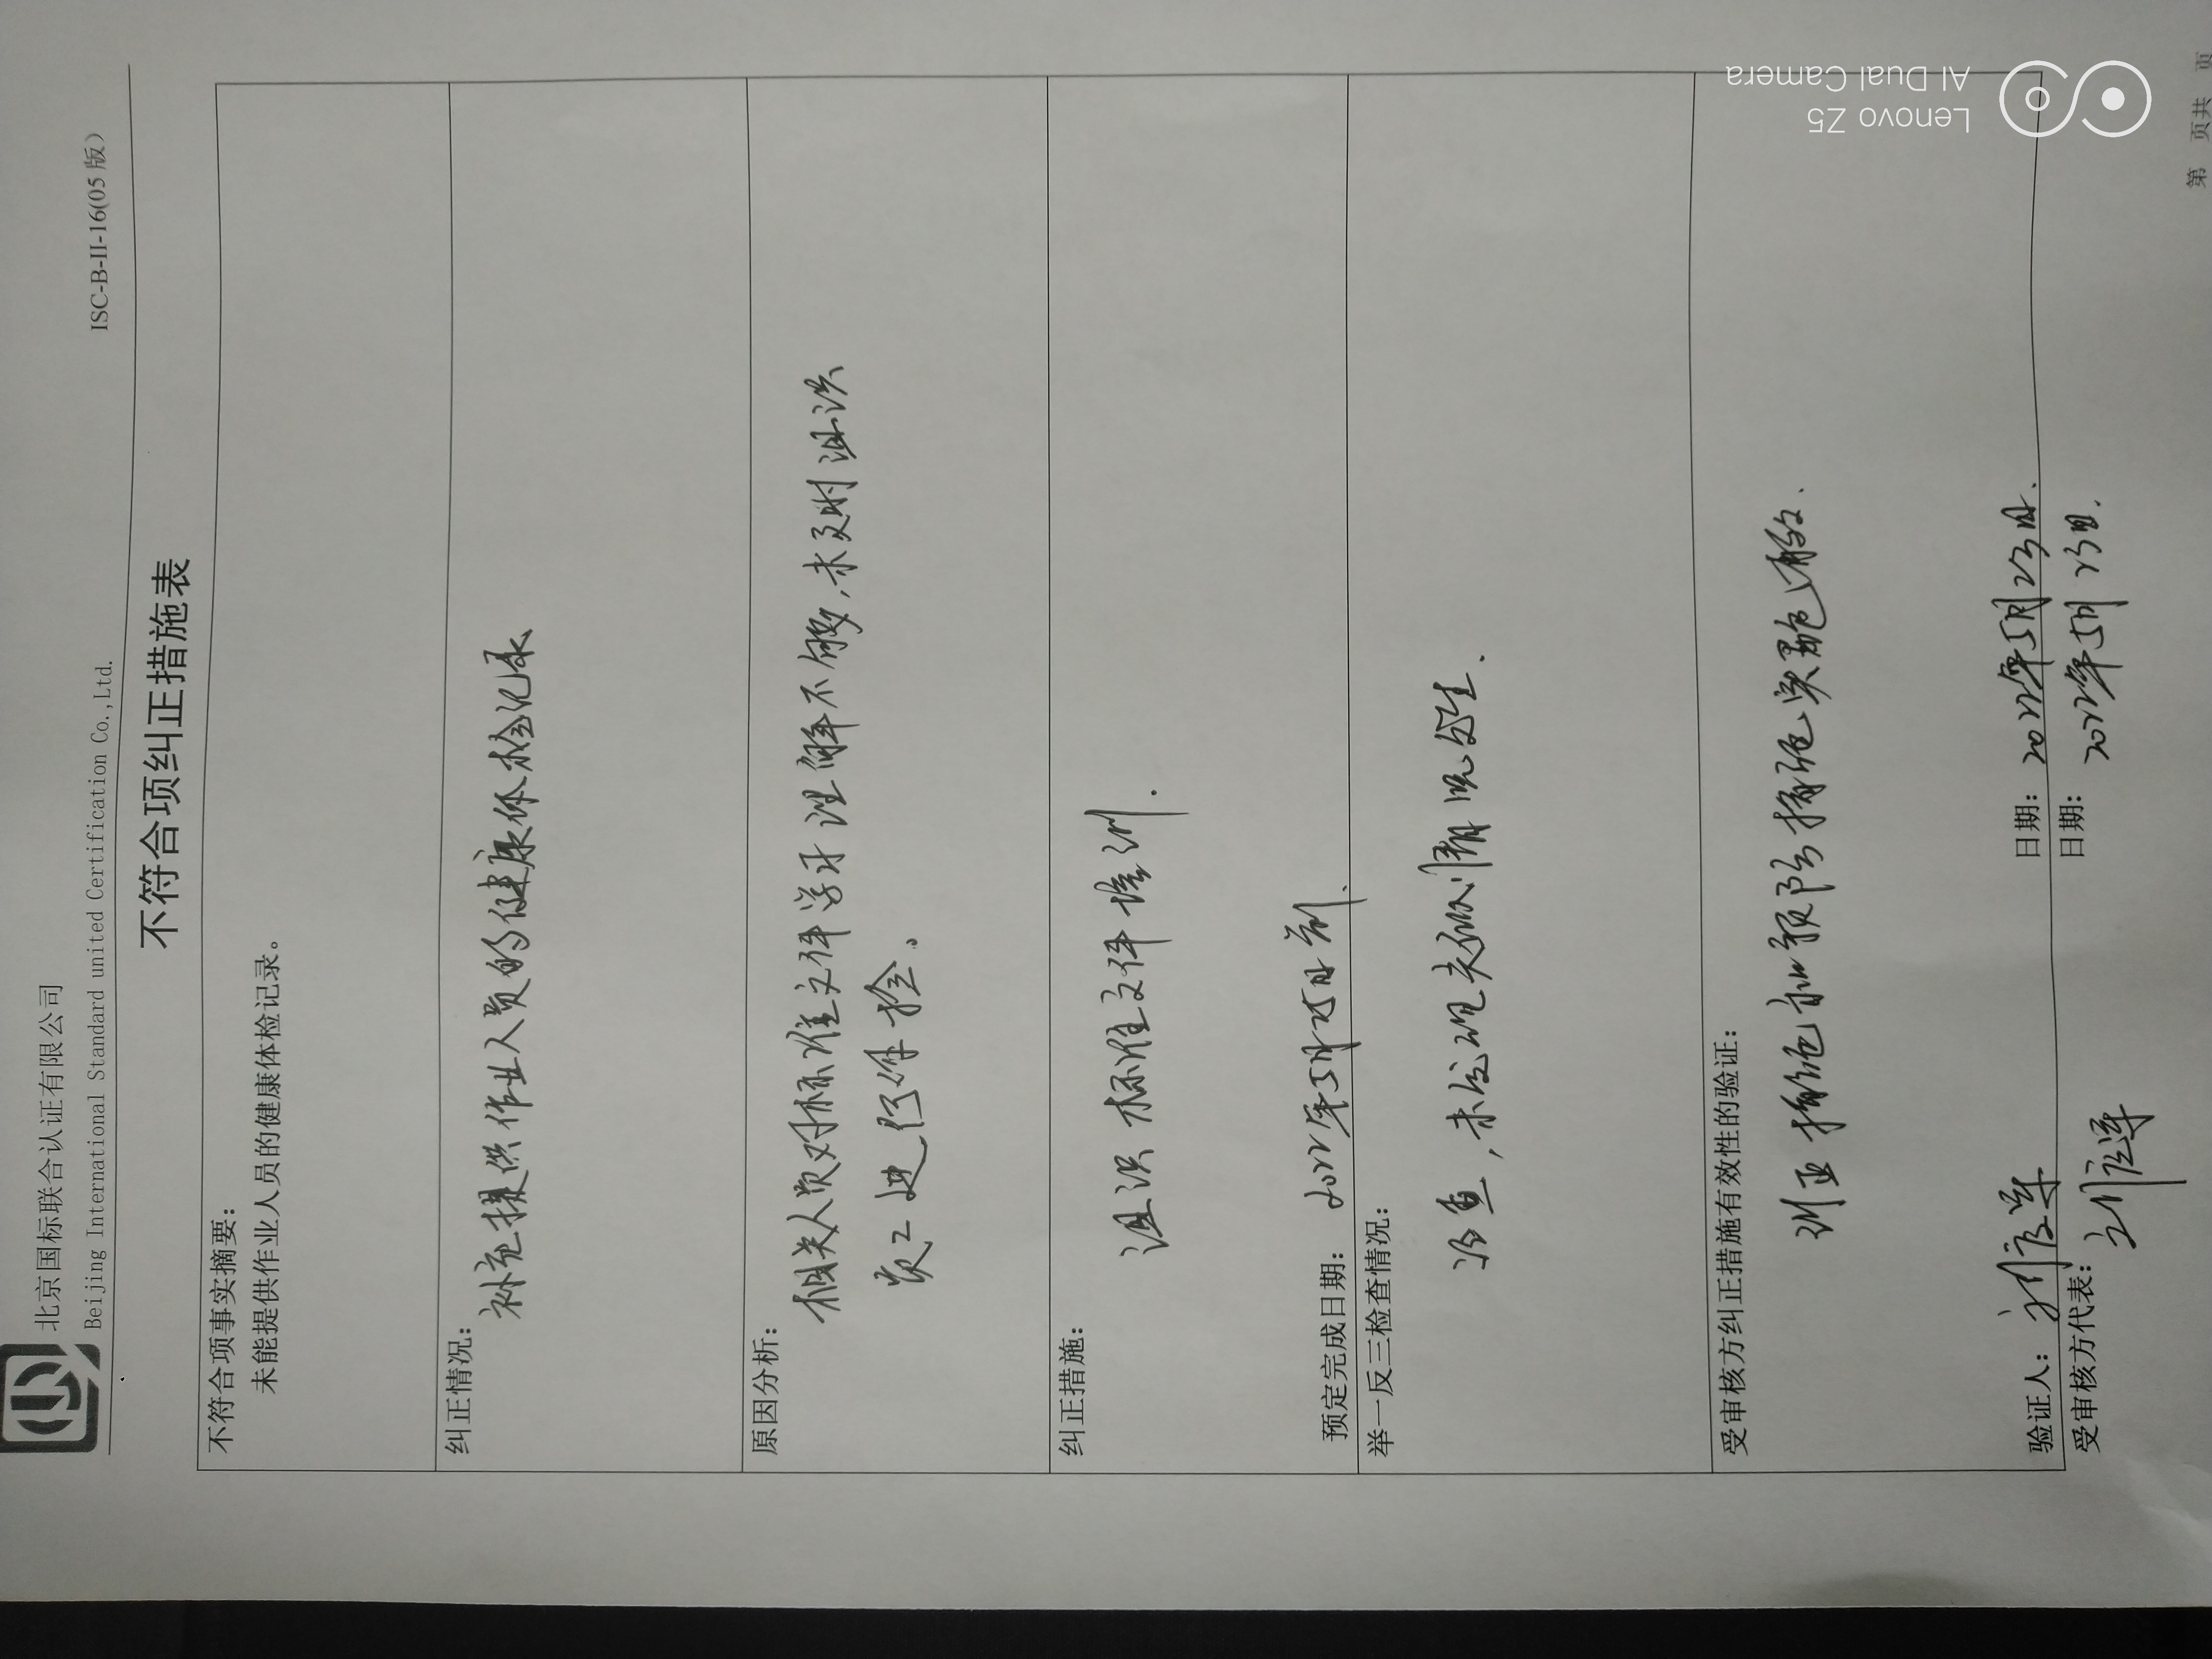 北京国标联合认证有限公司
Beijing International Standard united Certification Co.,Ltd.
ISC-B-II-16(05版)
不符合项纠正措施表
不符合项事实摘要:
未能提供作业人员的健康体检记录。
纠正情况:
补充提供作业人员的健康体检记录
原因分析:
相关人员对标准文件学习理解不够,未及时组织
员工进行体检。
纠正措施:
组织标准文件培训.
预定完成日期: 2022年5月25日前.
举一反三检查情况:
经查,未发现类似情况发生.
受审核方纠正措施有效性的验证:
纠正措施和预防措施实施有效.
验证人: 日期: 2022年5月23日.
受审核方代表: 日期: 2022年5月23日.
第 页共 页
Lenovo Z5
AI Dual Camera